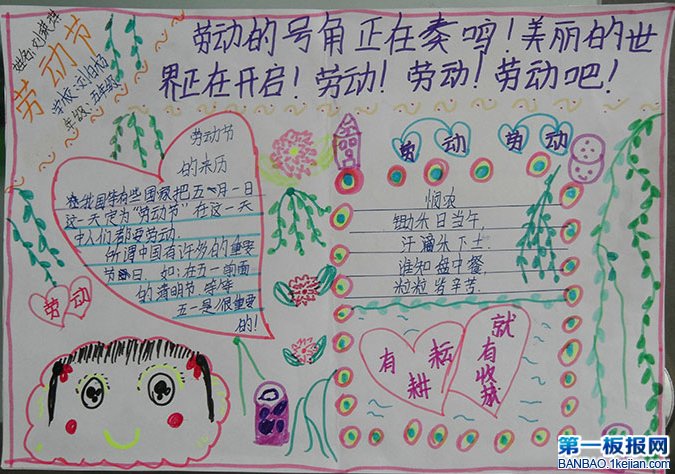 劳动节
学校:刘伯坊
年级:五年级
劳动的号角正在奏鸣!美丽的世
界正在开启!劳动!劳动!劳动吧!
劳动节
的来历
我国和有些国家把五月一日
这一天定为“劳动节”在这一天
中人们都要劳动
所谓中国有许多的重要
节日.如:在五一前面
的清明节 等等
五一是很重要
的!
劳动
劳动
劳动
悯农
锄禾日当午
汗滴禾下土.
谁知盘中餐
粒粒皆辛苦.
有耕耘
就有收获
第一板报网
BANBAO.1kejian.com